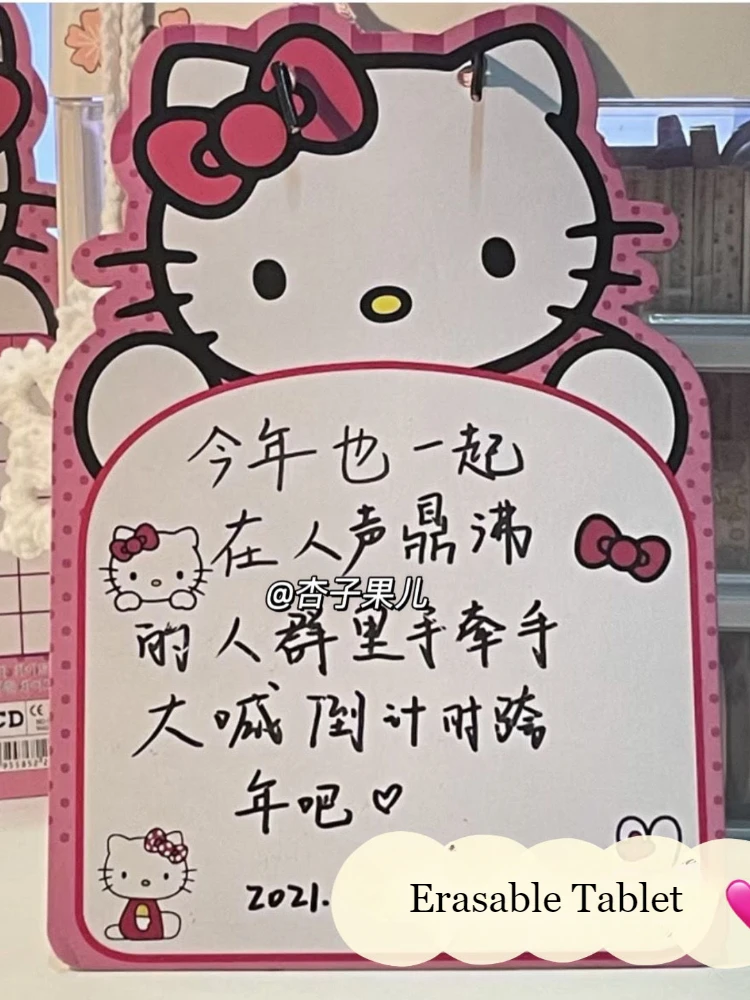 今年也一起
在人声鼎沸
@杏子果儿
的人群里手牵手
大喊倒计时跨
年吧♡
CD CE
2021.
Erasable Tablet